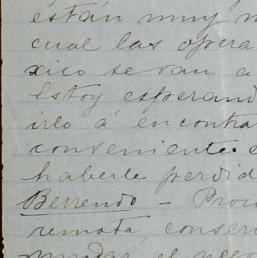 están muy
cual las opera
xico se van a
Estoy esperand
irlo á encontra
conveniente
haberle perdid
Berrendo - Proc
remata conser
mandar el nego